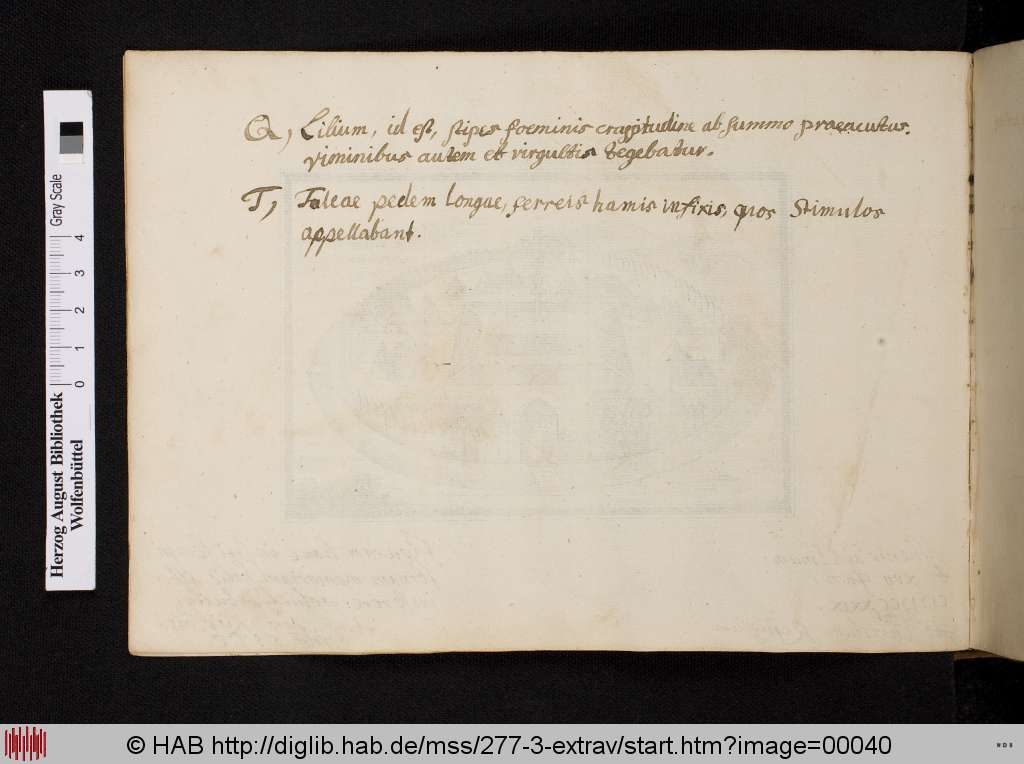 Q, Lilium, id est, stipes foeminis crassitudine ab summo praeacutus.
viminibus autem et virgultis tegebatur.
T, Taleae pedem longae, ferreis hamis infixis, quos Stimulos
appellabant.
Herzog August Bibliothek
Wolfenbüttel
0 1 2 3 4 Gray Scale
© HAB http://diglib.hab.de/mss/277-3-extrav/start.htm?image=00040